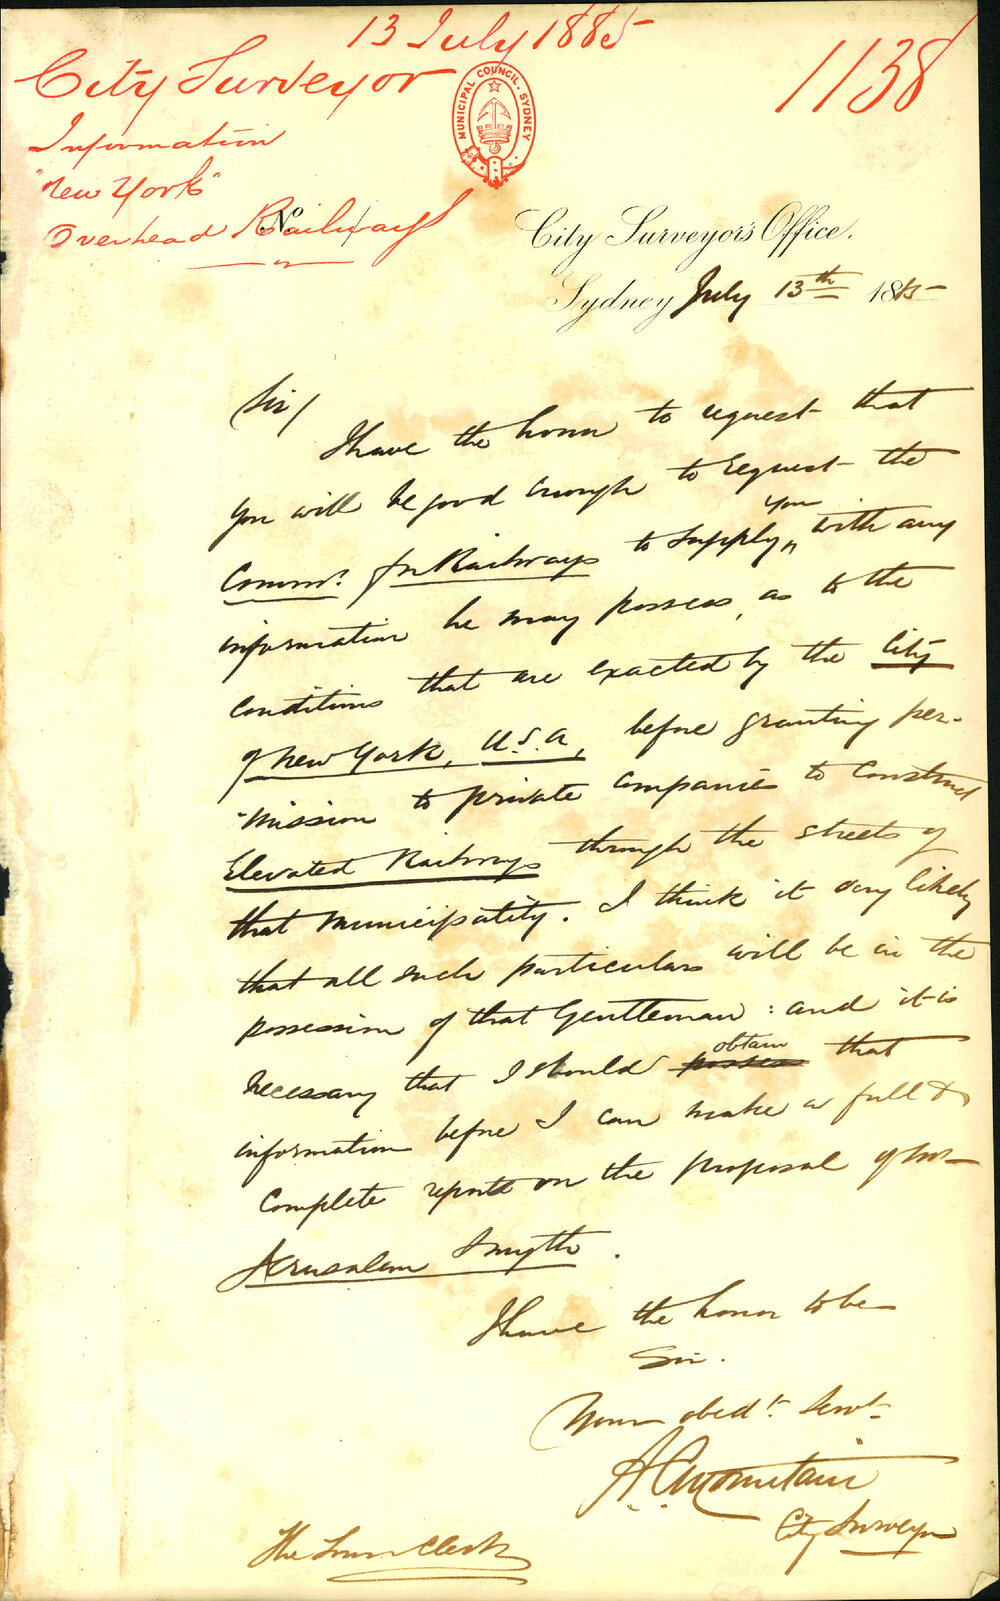 13 July 1885
City Surveyor
1138
MUNICIPAL COUNCIL. SYDNEY
Information
"New York"
Overhead Railways
No.
City Surveyor's Office.
Sydney July 13th 1885
Sir/
I have the honor to request that
you will be good enough to request the
Commr. for Railways to supply you with any
information he may possess, as to the
conditions that are exacted by the City
of New York, U.S.A, before granting per-
-mission to private companies to construct
Elevated Railways through the streets of
that Municipality. I think it very likely
that all such particulars will be in the
possession of that Gentleman: and it is
necessary that I should possess obtain that
information before I can make a full &
complete report on the proposal of Mr
Jerusalem Smyth.
I have the honor to be
Sir.
Your obedt. Servt.
A.C. Mountain
City Surveyor
The Town Clerk